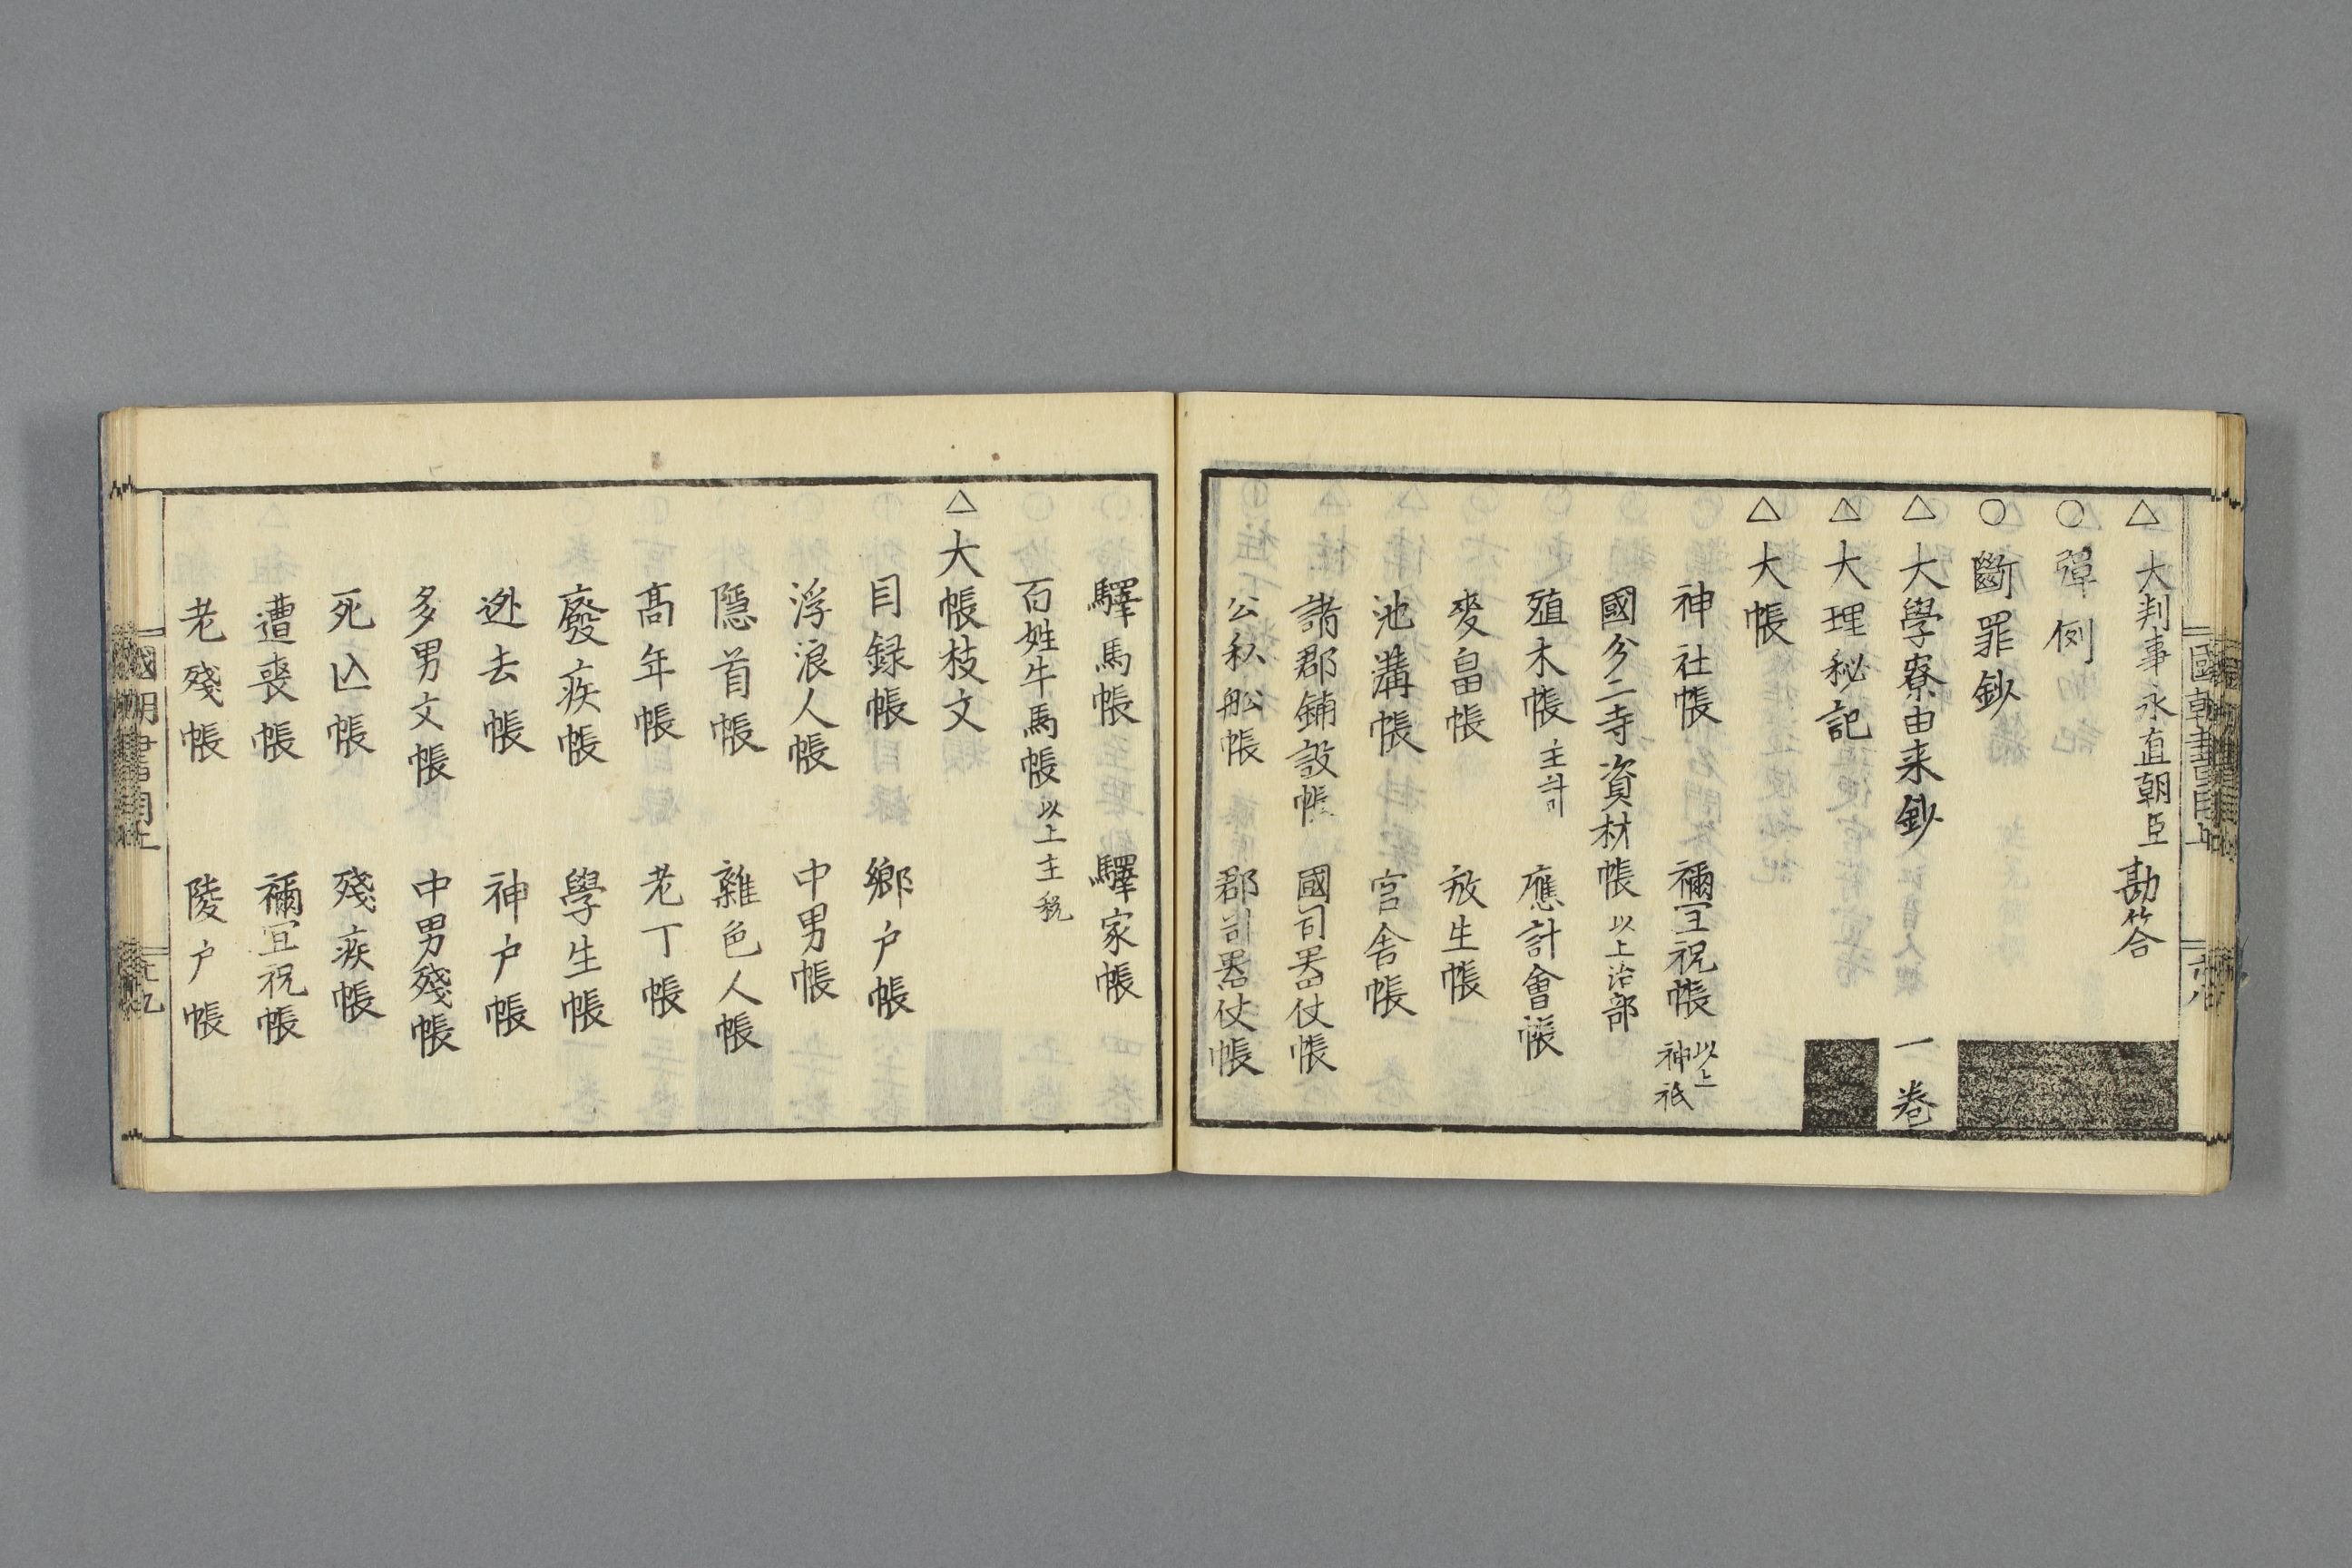 △大判事永直朝臣勘答
○彈例
○斷罪鈔
△大學寮由来鈔 一卷
△大理秘記
△大帳
神社帳 禰宜祝帳 以上神祇
國分二寺資材帳 以上治部
殖木帳 主計 應計會帳
麥畠帳 放生帳
池溝帳 官舍帳
諸郡鋪設帳 國司器仗帳
公私船帳 郡司器仗帳
驛馬帳 驛家帳
百姓牛馬帳 以上主税
△大帳枝文
目録帳 鄉戸帳
浮浪人帳 中男帳
隱首帳 雜色人帳
高年帳 老丁帳
廢疾帳 學生帳
逃去帳 神戸帳
多男父帳 中男殘帳
死亡帳 殘疾帳
遭喪帳 禰宜祝帳
老殘帳 陵戸帳
國朝書目上